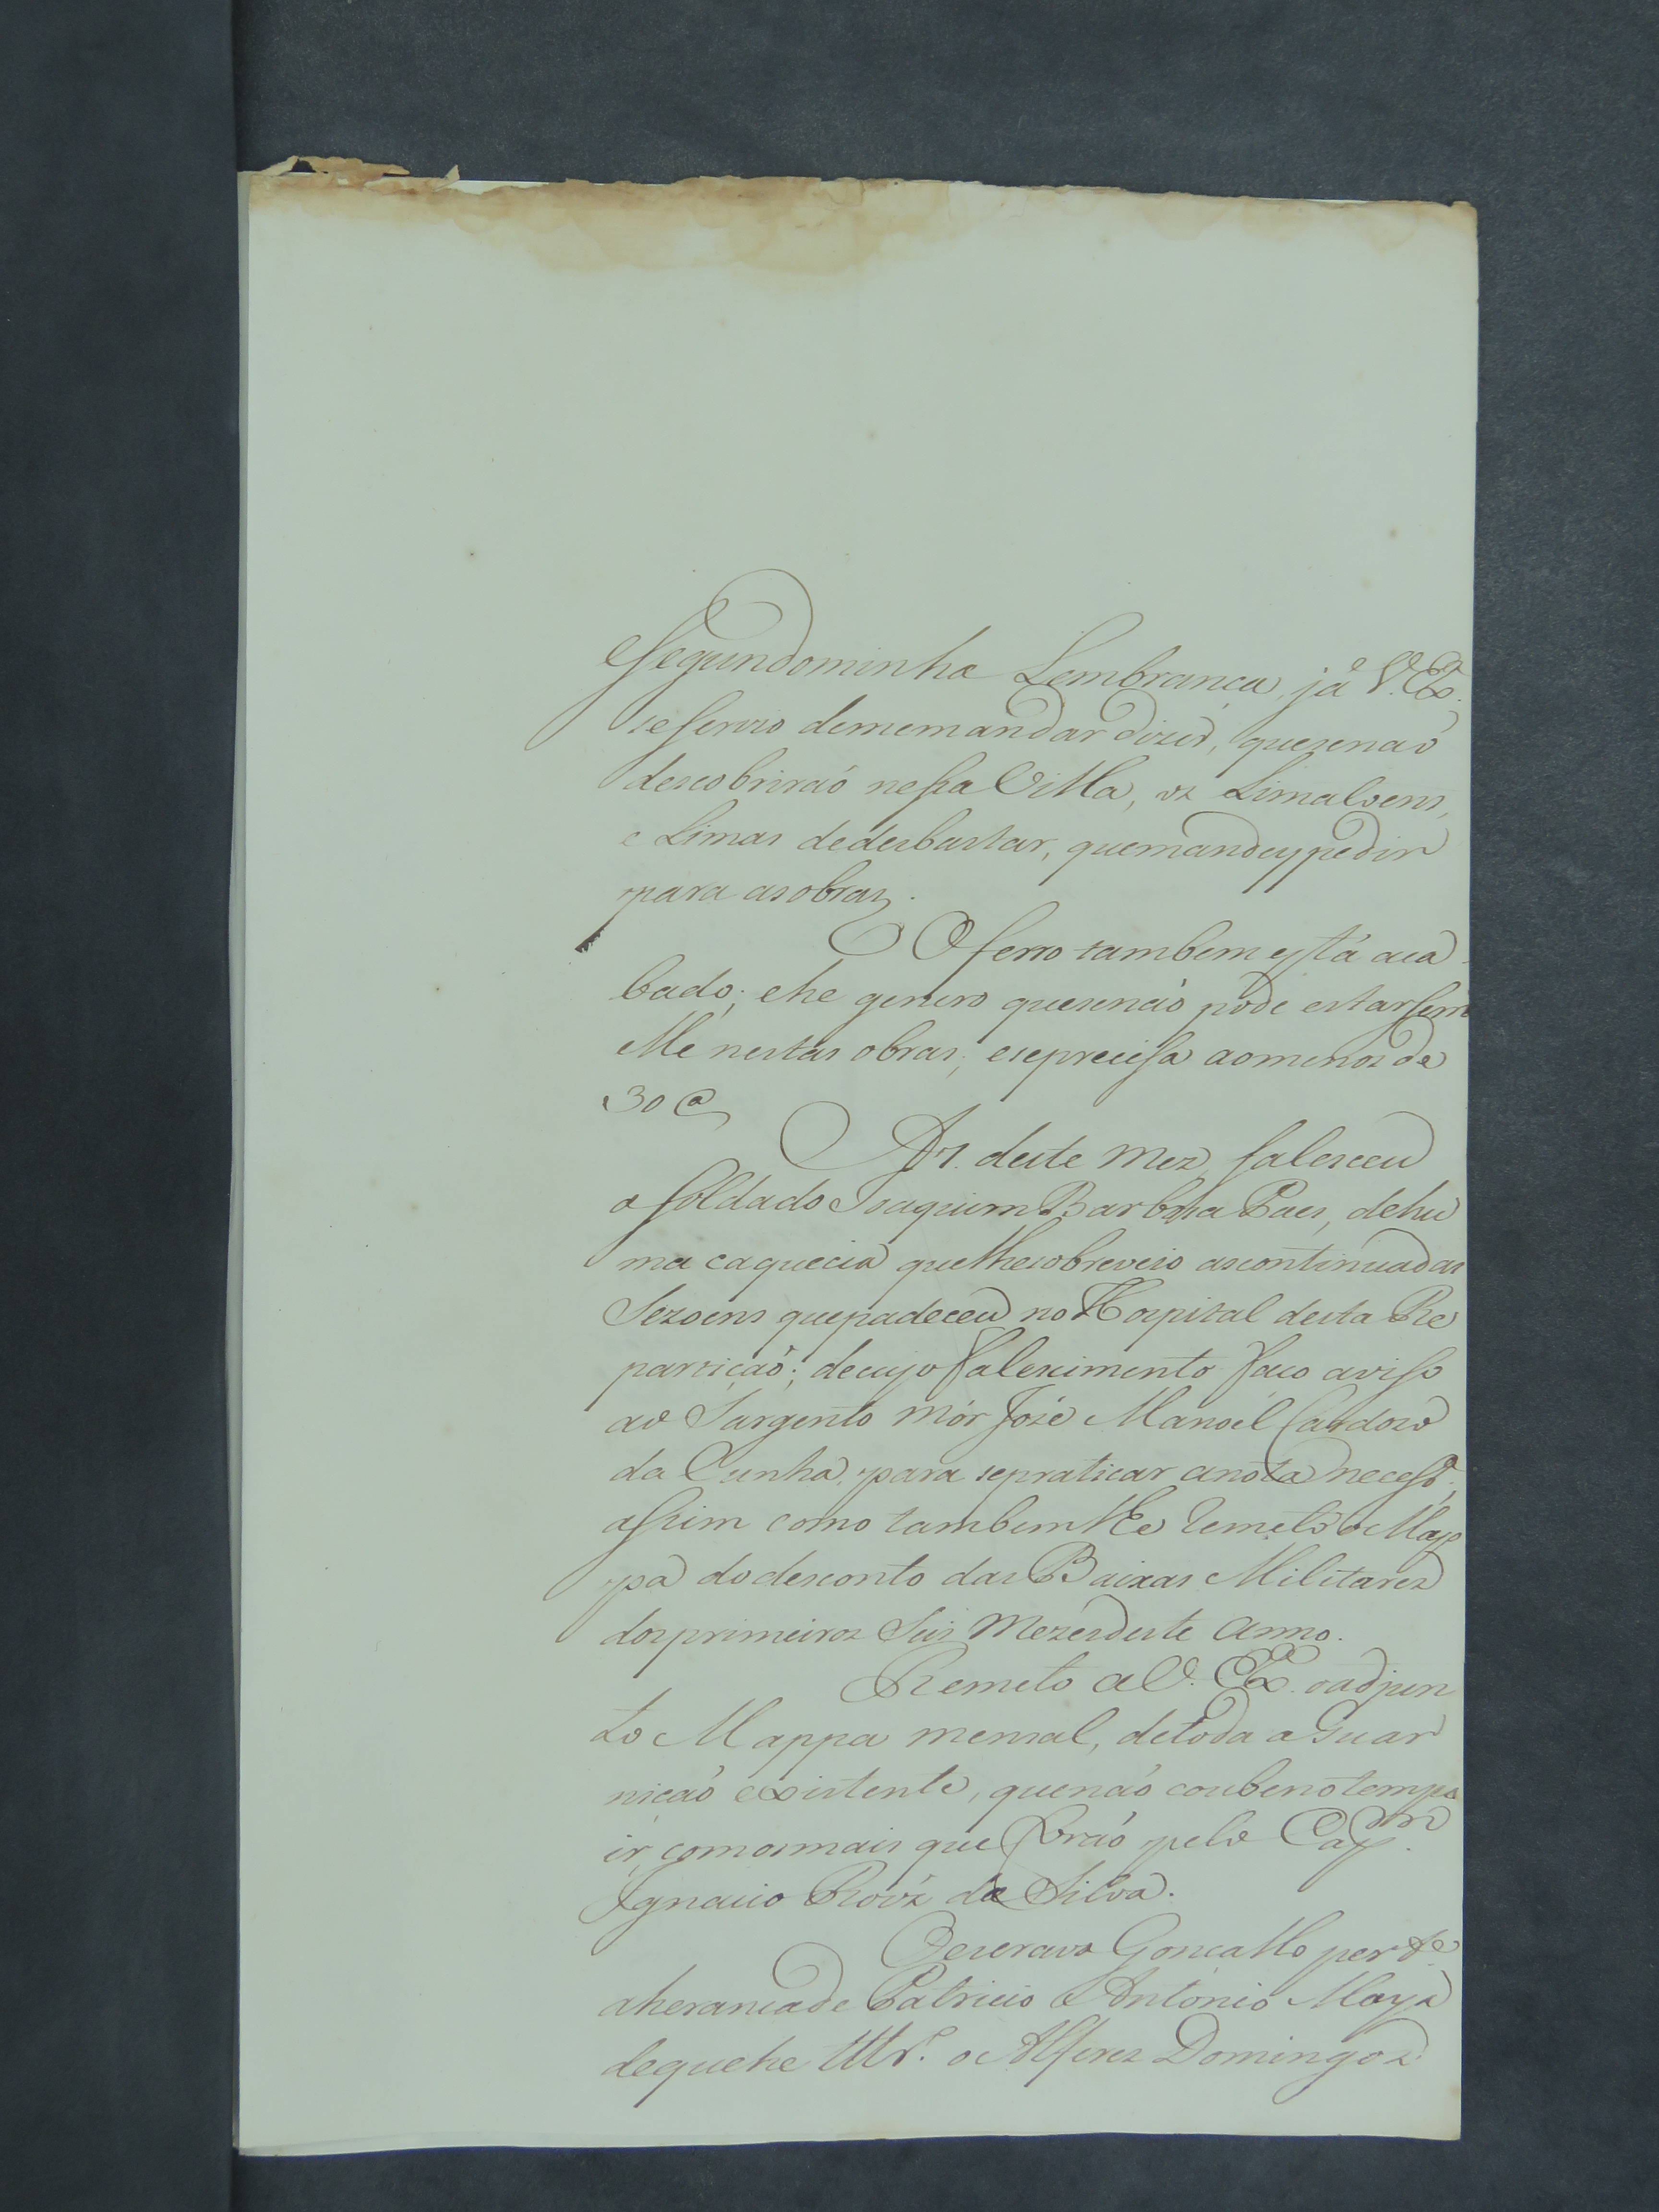 Segundo minha Lembrança, já V. Ex.ª
se servio de me mandar dizer, que se naõ
descobriraõ nessa Villa, os Limatoens,
e Limas de desbastar, que mandey pedir
para as obras.
O ferro tambem está aca
bado; e he genero que se naõ póde estar sem
elle nestas obras, e se precisa ao menos de
30 @
A 1. deste mez, falesceu
o soldado Joaquim Barbosa Paes, de hu
ma caquecia que lhe sobreveio as continuadas
Sezoens que padeceu no Hospital desta Re
partiçaõ; de cujo falescimento faço aviso
ao Sargento mór José Manoel Cardoso
da Cunha, para se praticar a nota necess.ª,
assim como tambem lhe remeto o Map
pa do desconto das Baixas Militares
dos primeiros Seis mezes deste anno.
Remeto a V. Ex.ª o adjun
to Mappa mensal, de toda a Guar
niçaõ existente, que naõ coube no tempo
ir, com os mais que foraõ pelo Cap.m
Ignacio Roiz da Silva.
O escravo Goncallo perd.e
a herança de Patricio Antonio Maya
de que he tt.r o Alferes Domingos